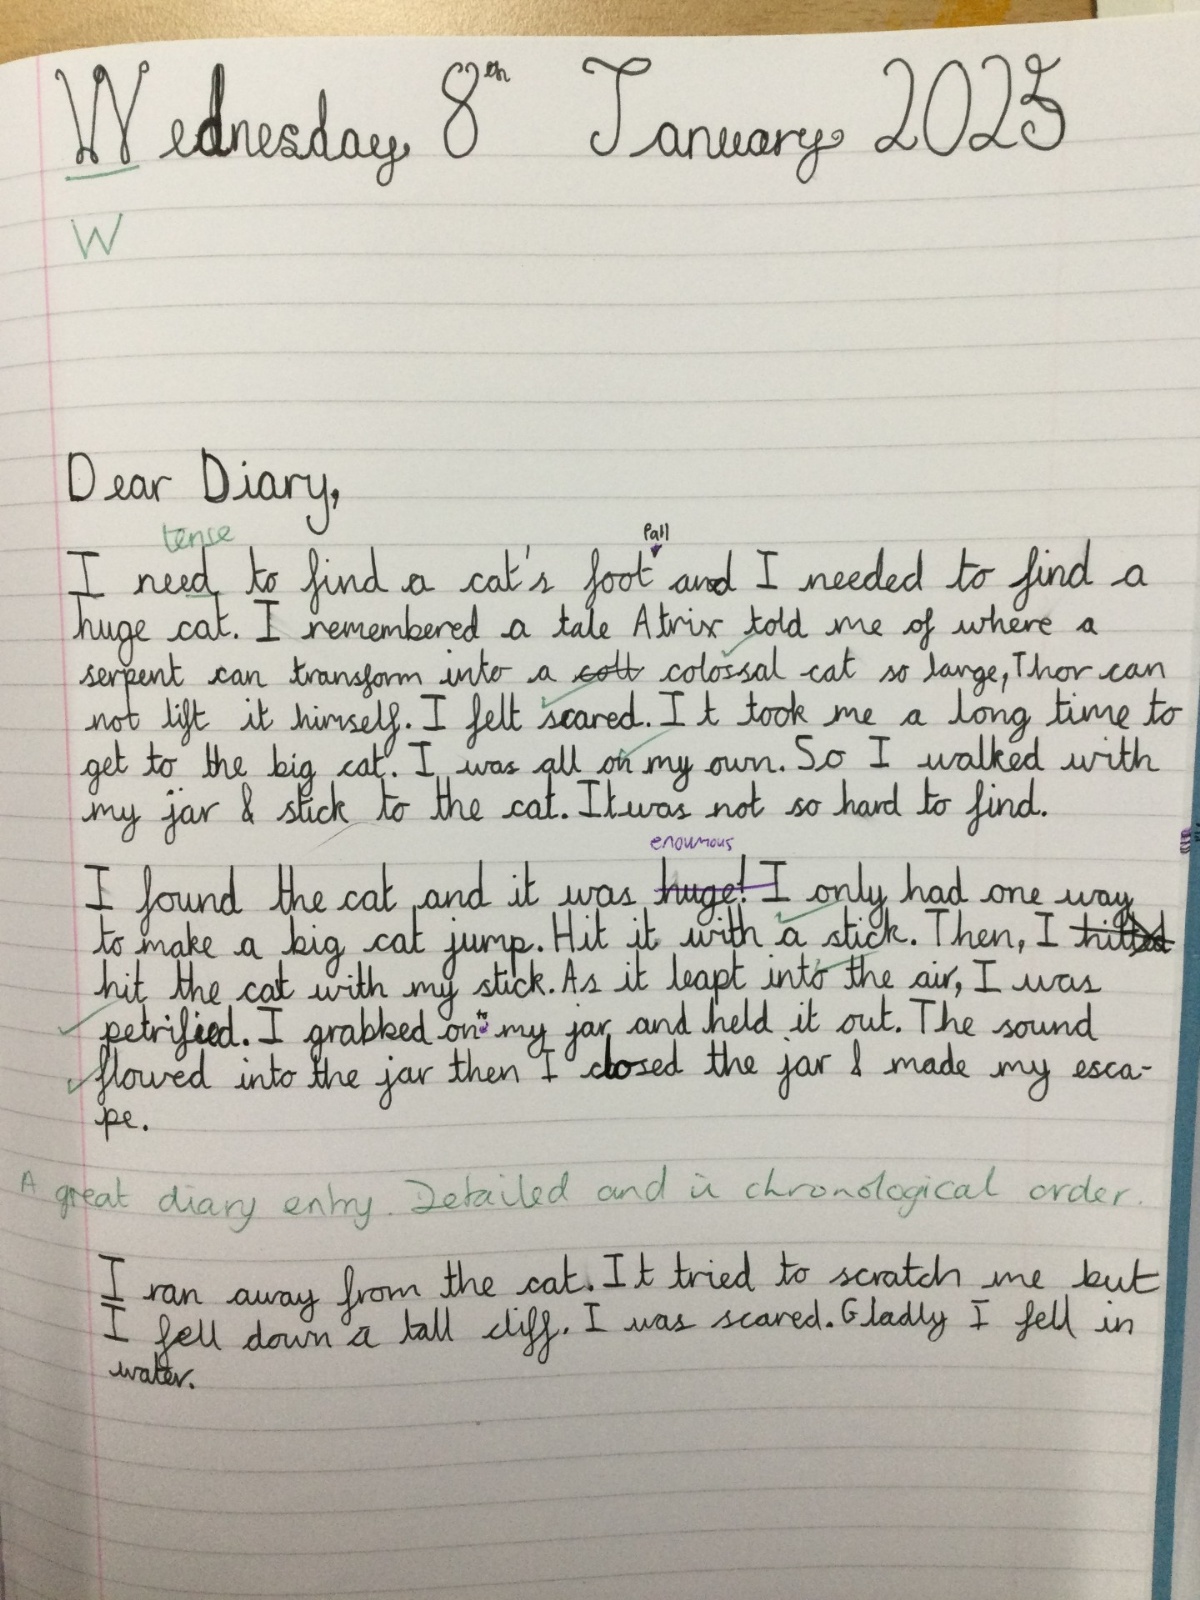 Wednesday 8th January 2025
W
Dear Diary,
tense
fall
I need to find a cat's foot and I needed to find a
huge cat. I remembered a tale Atrix told me of where a
serpent can transform into a colt colossal cat so large, Thor can
not lift it himself. I felt scared. It took me a long time to
get to the big cat. I was all on my own. So I walked with
my jar & stick to the cat. It was not so hard to find.
enoumous
I found the cat and it was huge! I only had one way
to make a big cat jump. Hit it with a stick. Then, I hitted
hit the cat with my stick. As it leapt into the air, I was
petrified. I grabbed onto my jar and held it out. The sound
flowed into the jar then I closed the jar & made my esca-
pe.
A great diary entry. Detailed and in chronological order.
I ran away from the cat. It tried to scratch me but
I fell down a tall cliff. I was scared. Gladly I fell in
water.